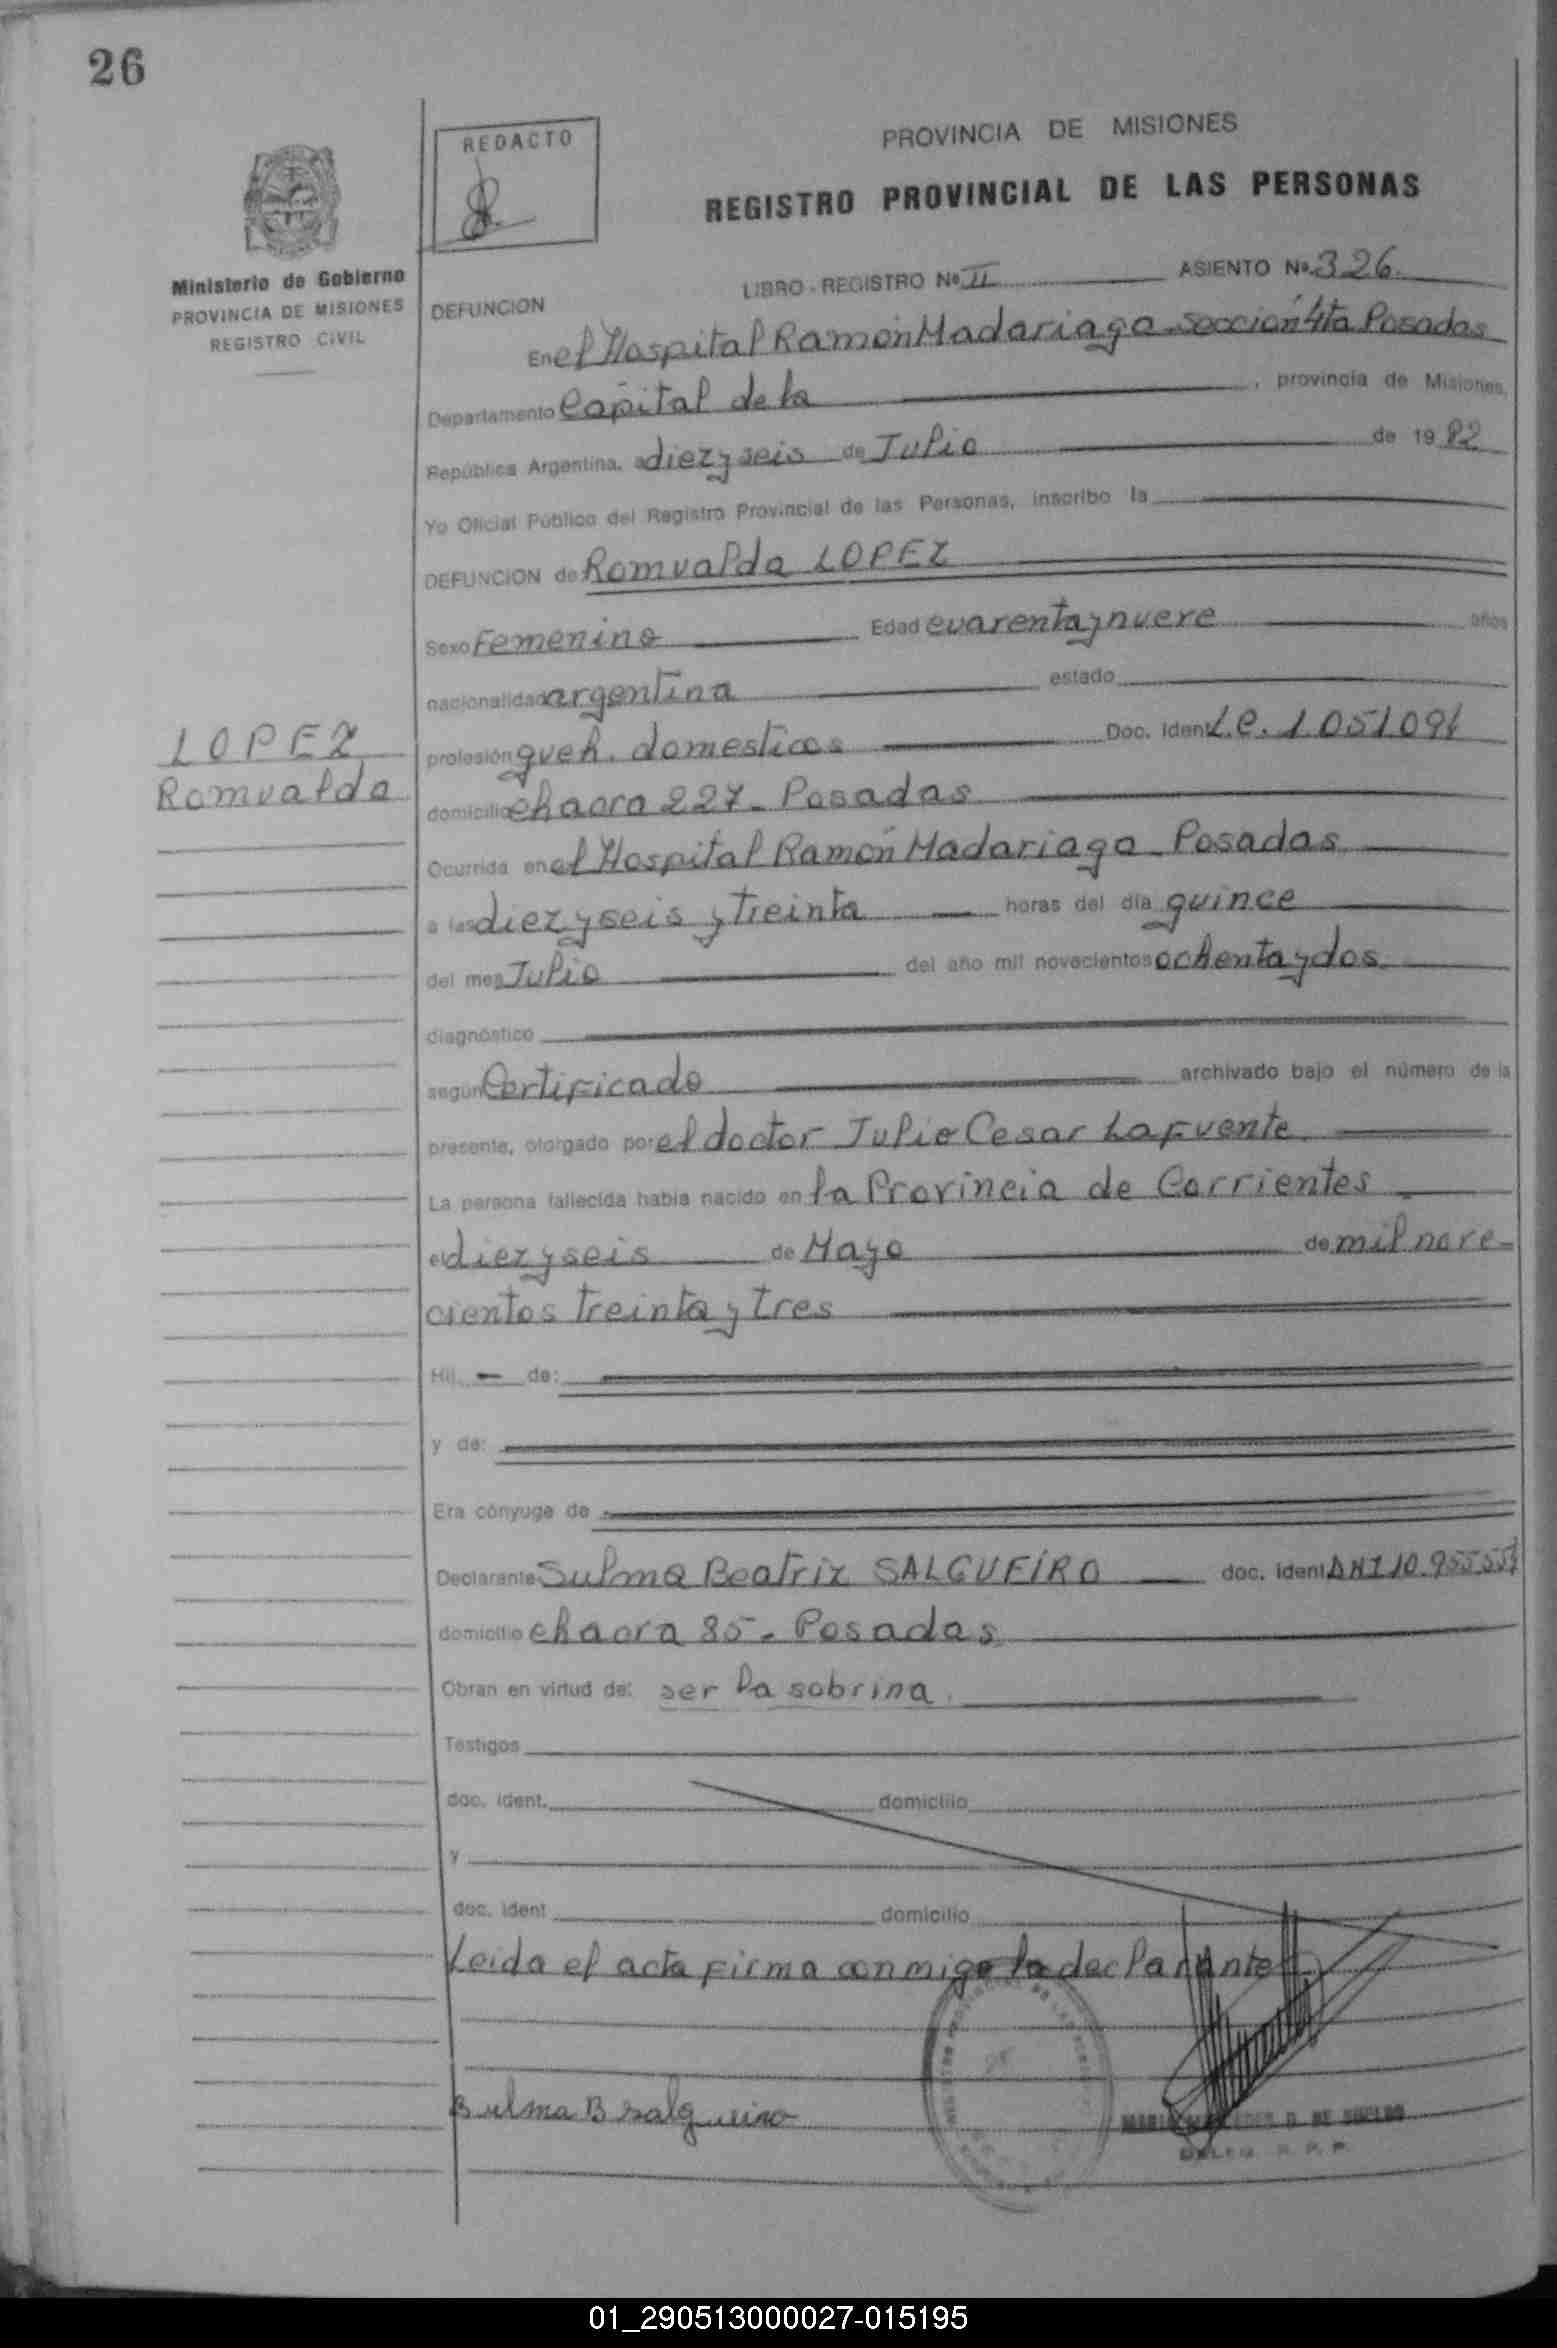 26
REDACTO
PROVINCIA DE MISIONES
REGISTRO PROVINCIAL DE LAS PERSONAS
Ministerio de Gobierno
PROVINCIA DE MISIONES
REGISTRO CIVIL
LIBRO - REGISTRO Nº II ASIENTO Nº 326.
DEFUNCION
En el Hospital Ramón Madariaga - sección 4ta Posadas
Departamento Capital de la , provincia de Misiones,
República Argentina, a diez y seis de Julio de 1982
Yo Oficial Público del Registro Provincial de las Personas, inscribo la
DEFUNCION de Romualda LOPEZ
Sexo Femenino Edad cuarenta y nueve años
nacionalidad argentina estado
LOPEZ
Romualda
profesión queh. domesticos Doc. Ident L.C. 1.051.091
domicilio chacra 227 - Posadas
Ocurrida en el Hospital Ramón Madariaga - Posadas
a las diez y seis y treinta horas del día quince
del mes Julio del año mil novecientos ochenta y dos
diagnóstico
según Certificado archivado bajo el número de la
presente, otorgado por el doctor Julio Cesar Lafuente.
La persona fallecida había nacido en la Provincia de Corrientes
el diez y seis de Mayo de mil nove-
cientos treinta y tres
Hij - de:
y de:
Era cónyuge de
Declarante Sulma Beatriz SALGUEIRO doc. ident DNI 10.955.55
domicilio chacra 85 - Posadas
Obran en virtud de: ser la sobrina.
Testigos
doc. ident. domicilio
y
doc. ident domicilio
Leida el acta firma conmigo la declarante
Sulma B Salgueiro
DELEG. R. P. P.
01_290513000027-015195